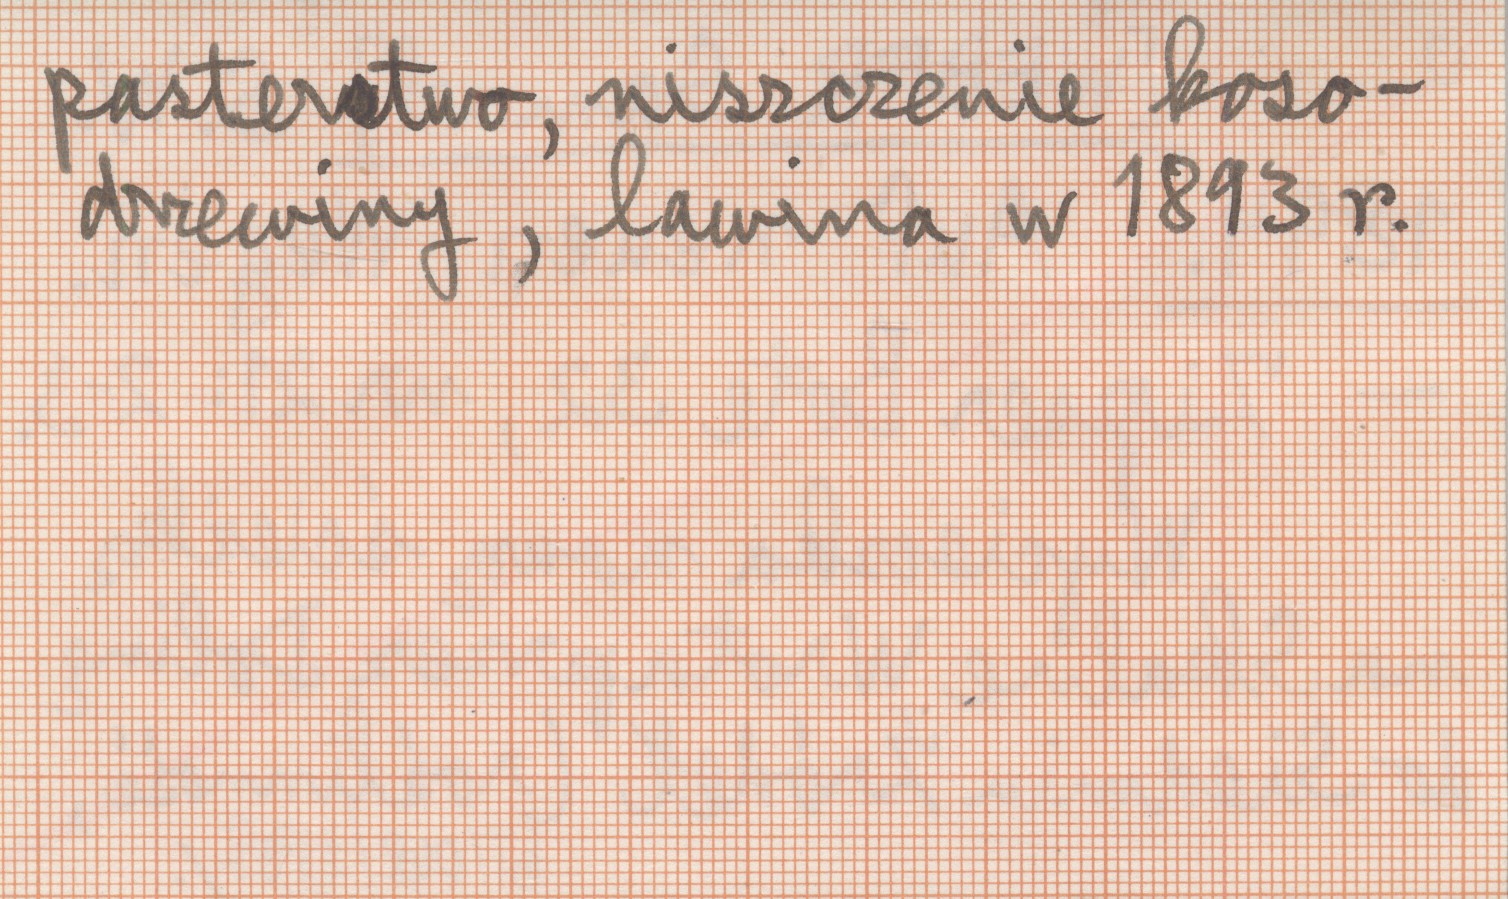 pasterstwo, niszczenie koso-
drzewiny, lawina w 1893 r.